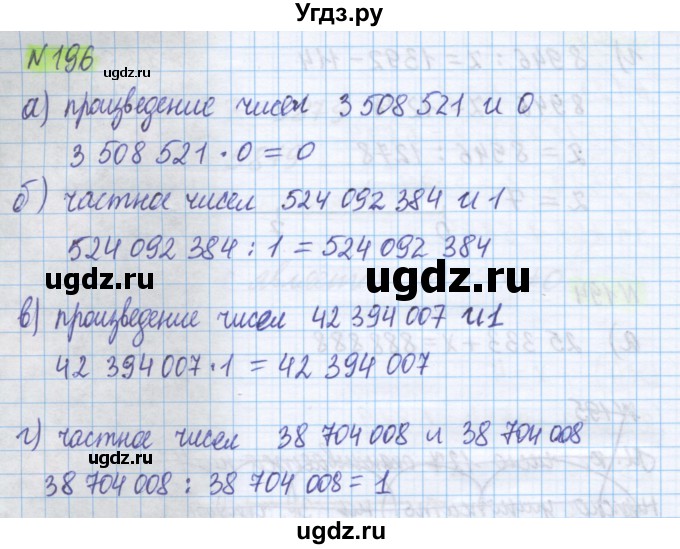 Угдз.ру
N 196
ugdz.ru
а) произведение чисел 3 508 521 и 0
3 508 521 · 0 = 0
ugdz.ru
б) частное чисел 524 092 384 и 1
524 092 384 : 1 = 524 092 384
ugdz.ru
ugdz.ru
ugdz.ru
в) произведение чисел 42 394 007 и 1
42 394 007 · 1 = 42 394 007
ugdz.ru
ugdz.ru
г) частное чисел 38 704 008 и 38 704 008
ugdz.ru
38 704 008 : 38 704 008 = 1
ugdz.ru
ugdz.ru